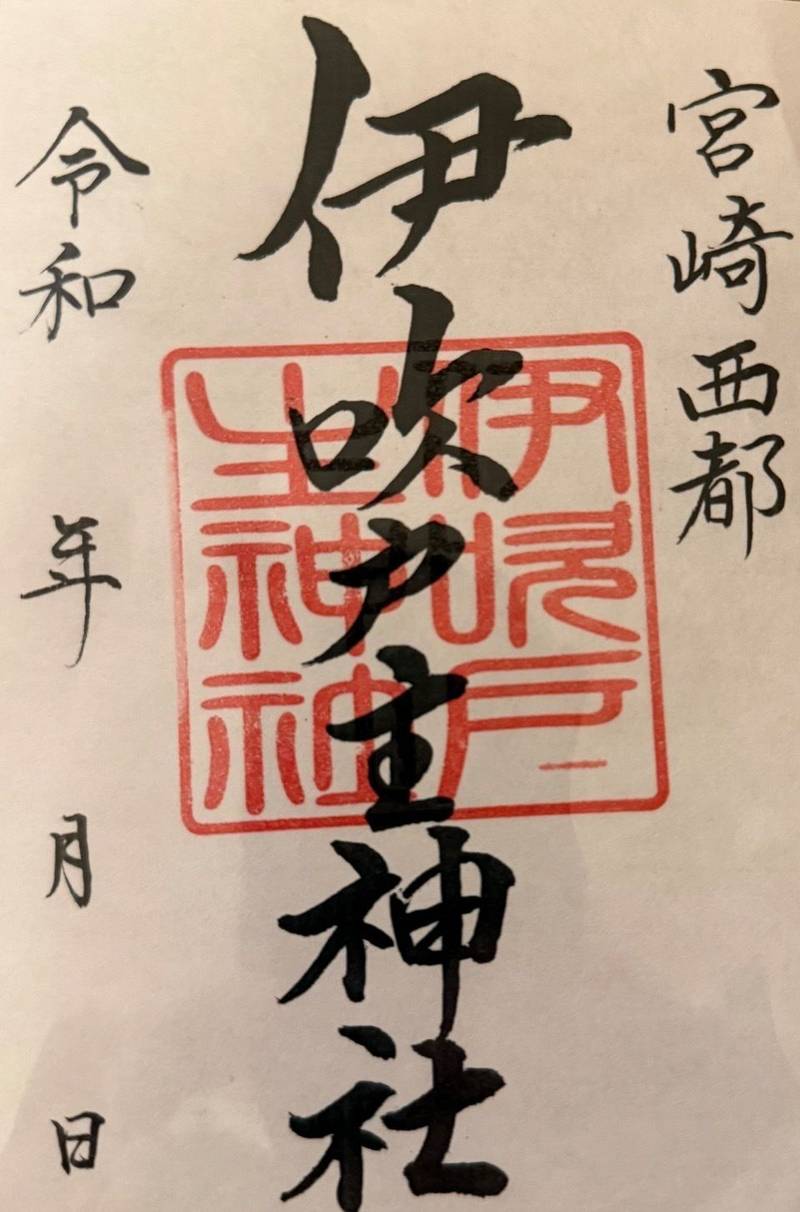 宮崎西都
伊吹戸主神社
令和 年 月 日
伊吹戸
主神社